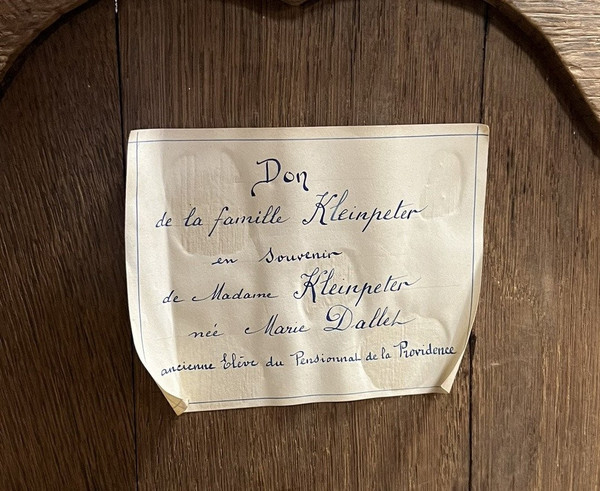 Don
de la famille Kleinpeter
en souvenir
de Madame Kleinpeter
née Marie Dallet
ancienne Elève du Pensionnat de la Providence